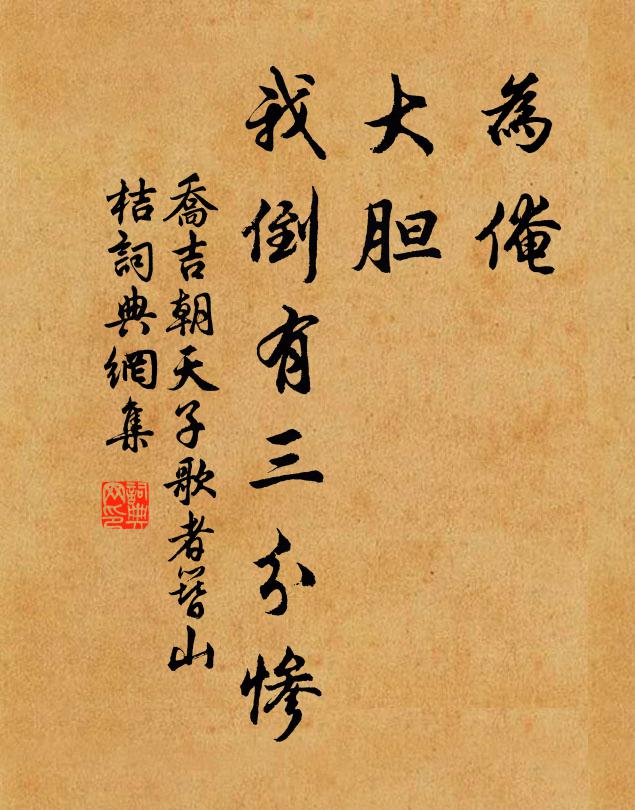 為俺
大胆
我倒有三分慘
喬吉朝天子歌者簪山
桔詞典網集
詞典
网印